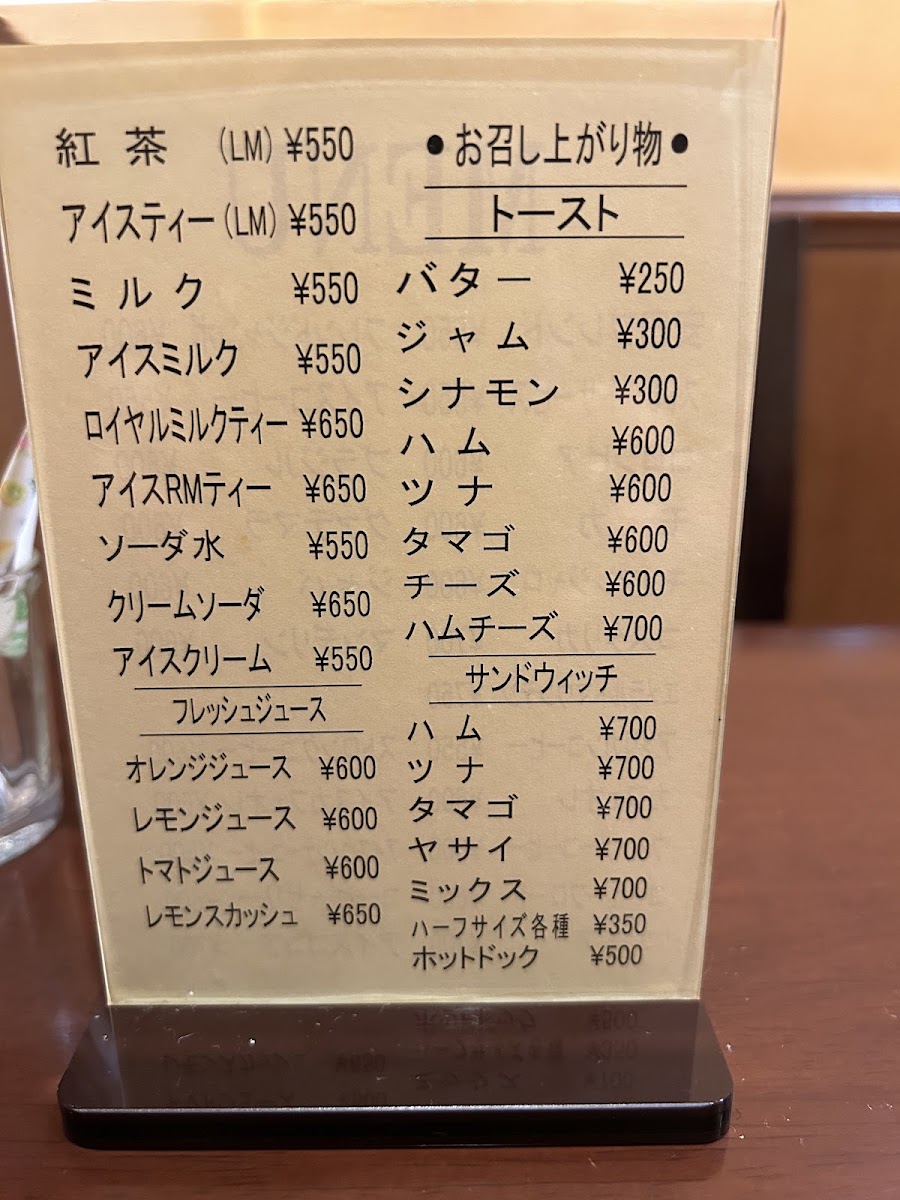 紅茶 (LM) ¥550
アイスティー(LM) ¥550
ミルク ¥550
アイスミルク ¥550
ロイヤルミルクティー ¥650
アイスRMティー ¥650
ソーダ水 ¥550
クリームソーダ ¥650
アイスクリーム ¥550
フレッシュジュース
オレンジジュース ¥600
レモンジュース ¥600
トマトジュース ¥600
レモンスカッシュ ¥650
●お召し上がり物●
トースト
バター ¥250
ジャム ¥300
シナモン ¥300
ハム ¥600
ツナ ¥600
タマゴ ¥600
チーズ ¥600
ハムチーズ ¥700
サンドウィッチ
ハム ¥700
ツナ ¥700
タマゴ ¥700
ヤサイ ¥700
ミックス ¥700
ハーフサイズ各種 ¥350
ホットドック ¥500